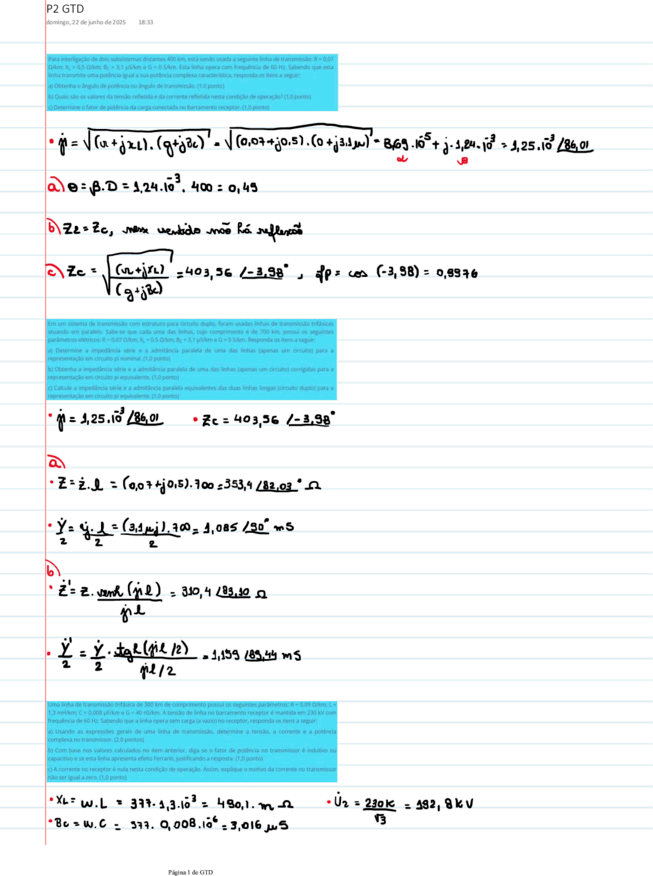 P2 GTD
domingo, 22 de junho de 2025 18:33
Para interligação de dois subsistemas distantes 400 km, está sendo usada a seguinte linha de transmissão: R = 0,07
Ω/km, XL = 0,5 Ω/km; BC = 3,1 µS/km e G = 0 S/km. Esta linha opera com frequência de 60 Hz. Sabendo que esta
linha transmite uma potência igual a sua potência complexa característica, responda os itens a seguir:
a) Obtenha o ângulo de potência ou ângulo de transmissão. (1,0 ponto)
b) Quais são os valores da tensão refletida e da corrente refletida nesta condição de operação? (1,0 ponto)
c) Determine o fator de potência da carga conectada no barramento receptor. (1,0 ponto)
• γ̇ = √((r+jxL).(g+jBc)) = √((0,07+j0,5).(0+j3,1µ)) = 8,69.10⁻⁵ + j.1,24.10⁻³ = 1,25.10⁻³ /86,01
α β
a) θ = β.D = 1,24.10⁻³. 400 = 0,49
b) Z2 = Zc, nesse sentido não há reflexão
c) Zc = √((r+jxL)/(g+jBc)) = 403,56 /-3,98° , fp = cos (-3,98) = 0,9976
Em um sistema de transmissão com estrutura para circuito duplo, foram usadas linhas de transmissão trifásicas
atuando em paralelo. Sabe-se que cada uma das linhas, cujo comprimento é de 700 km, possui os seguintes
parâmetros elétricos: R = 0,07 Ω/km, XL = 0,5 Ω/km; BC = 3,1 µS/km e G = 0 S/km. Responda os itens a seguir:
a) Determine a impedância série e a admitância paralela de uma das linhas (apenas um circuito) para a
representação em circuito pi nominal. (1,0 ponto)
b) Obtenha a impedância série e a admitância paralela de uma das linhas (apenas um circuito) corrigidos para a
representação em circuito pi equivalente. (1,0 ponto)
c) Calcule a impedância série e a admitância paralela equivalentes das duas linhas longas (circuito duplo) para a
representação em circuito pi equivalente. (1,0 ponto)
• γ̇ = 1,25.10⁻³ /86,01 • Zc = 403,56 /-3,98°
a)
• Ż = ż.l = (0,07+j0,5).700 = 353,4 /82,03° Ω
• Ẏ/2 = ẏ.l/2 = (3,1µj).700/2 = 1,085 /90° mS
b)
• Ż' = Z. senh(γ̇l)/γ̇l = 310,4 /83,30 Ω
• Ẏ'/2 = Ẏ/2 . tgh(γ̇l/2)/γ̇l/2 = 1,159 /89,44 mS
Uma linha de transmissão trifásica de 300 km de comprimento possui os seguintes parâmetros: R = 0,09 Ω/km; L =
1,3 mH/km; C = 0,008 µF/km e G = 40 nS/km. A tensão de linha no barramento receptor é mantida em 230 kV com
frequência de 60 Hz. Sabendo que a linha opera sem carga (a vazio) no receptor, responda os itens a seguir:
a) Usando as expressões gerais de uma linha de transmissão, determine a tensão, a corrente e a potência
complexa no transmissor. (2,0 pontos)
b) Com base nos valores calculados no item anterior, diga se o fator de potência no transmissor é indutivo ou
capacitivo e se esta linha apresenta efeito Ferranti, justificando a resposta. (1,0 ponto)
c) A corrente no receptor é nula nesta condição de operação. Assim, explique o motivo da corrente no transmissor
não ser igual a zero. (1,0 ponto)
• XL = ω.L = 377.1,3.10⁻³ = 490,1.m Ω • U̇2 = 230K/√3 = 132,8 kV
• Bc = ω.C = 377. 0,008.10⁻⁶ = 3,016 µS
Página 1 de GTD